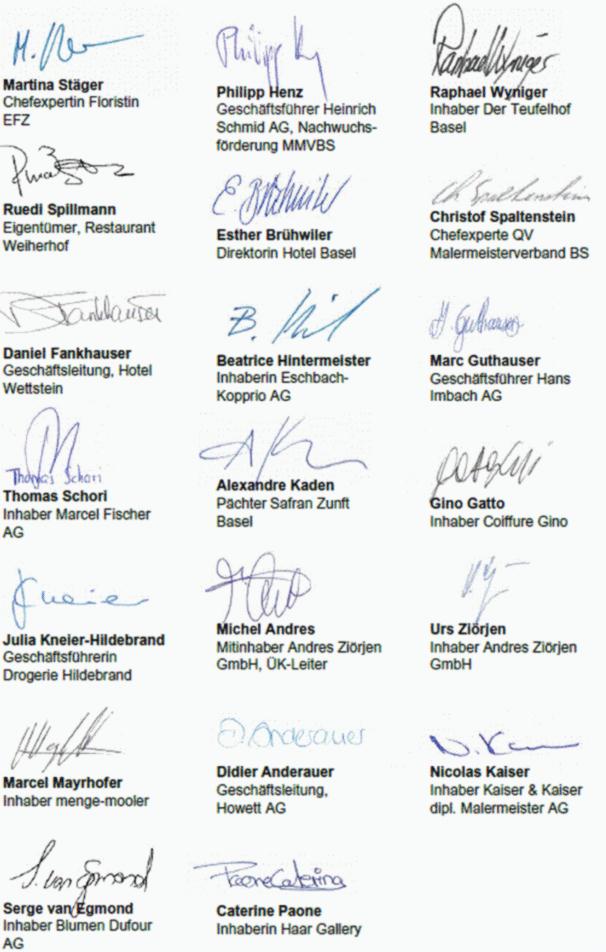 Martina Stäger
Chefexpertin Floristin
EFZ
Philipp Henz
Geschäftsführer Heinrich
Schmid AG, Nachwuchs-
förderung MMVBS
Raphael Wyniger
Raphael Wyniger
Inhaber Der Teufelhof
Basel
Ruedi Spillmann
Eigentümer, Restaurant
Weiherhof
E. Brühwiler
Esther Brühwiler
Direktorin Hotel Basel
Ch. Spaltenstein
Christof Spaltenstein
Chefexperte QV
Malermeisterverband BS
D. Fankhauser
Daniel Fankhauser
Geschäftsleitung, Hotel
Wettstein
Beatrice Hintermeister
Inhaberin Eschbach-
Kopprio AG
M. Guthauser
Marc Guthauser
Geschäftsführer Hans
Imbach AG
Thomas Schori
Thomas Schori
Inhaber Marcel Fischer
AG
Alexandre Kaden
Pächter Safran Zunft
Basel
Gino Gatto
Inhaber Coiffure Gino
Kneier
Julia Kneier-Hildebrand
Geschäftsführerin
Drogerie Hildebrand
Michel Andres
Mitinhaber Andres Ziörjen
GmbH, ÜK-Leiter
Urs Ziörjen
Inhaber Andres Ziörjen
GmbH
Marcel Mayrhofer
Inhaber menge-mooler
D. Anderauer
Didier Anderauer
Geschäftsleitung,
Howett AG
Nicolas Kaiser
Inhaber Kaiser & Kaiser
dipl. Malermeister AG
S. van Egmond
Serge van Egmond
Inhaber Blumen Dufour
AG
Paone Caterina
Caterine Paone
Inhaberin Haar Gallery